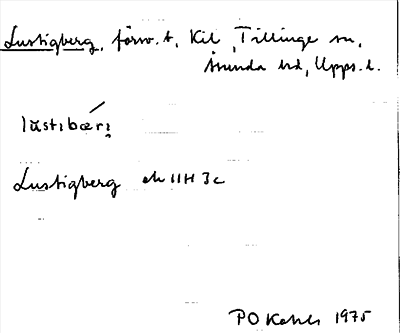 Lustigberg, försv. t. Kil, Tillinge sn,
Åsunda hd, Upps. l.
lùstɩbærɩ̥
Lustigberg ek 11H 3c
PO Kahls 1975